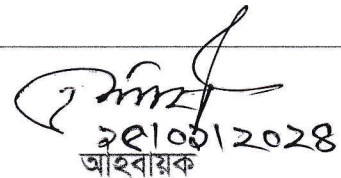 ২৫|০১|২০২৪
আহবায়ক